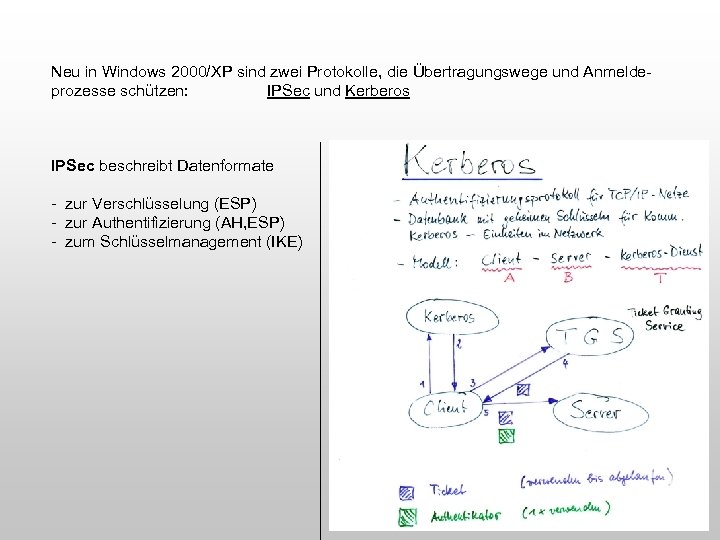 Neu in Windows 2000/XP sind zwei Protokolle, die Übertragungswege und Anmelde-
prozesse schützen: IPSec und Kerberos
IPSec beschreibt Datenformate
- zur Verschlüsselung (ESP)
- zur Authentifizierung (AH,ESP)
- zum Schlüsselmanagement (IKE)
Kerberos
- Authentifizierungsprotokoll für TCP/IP-Netze
- Datenbank mit geheimen Schlüsseln für Komm.
Kerberos - Einheiten im Netzwerk
- Modell: Client - Server - Kerberos-Dienst
A B T
Kerberos
TGS
Ticket Granting
Service
2
1
3
4
Client
5
Server
Ticket (verwenden bis abgelaufen)
Authentikator (1 x verwenden)